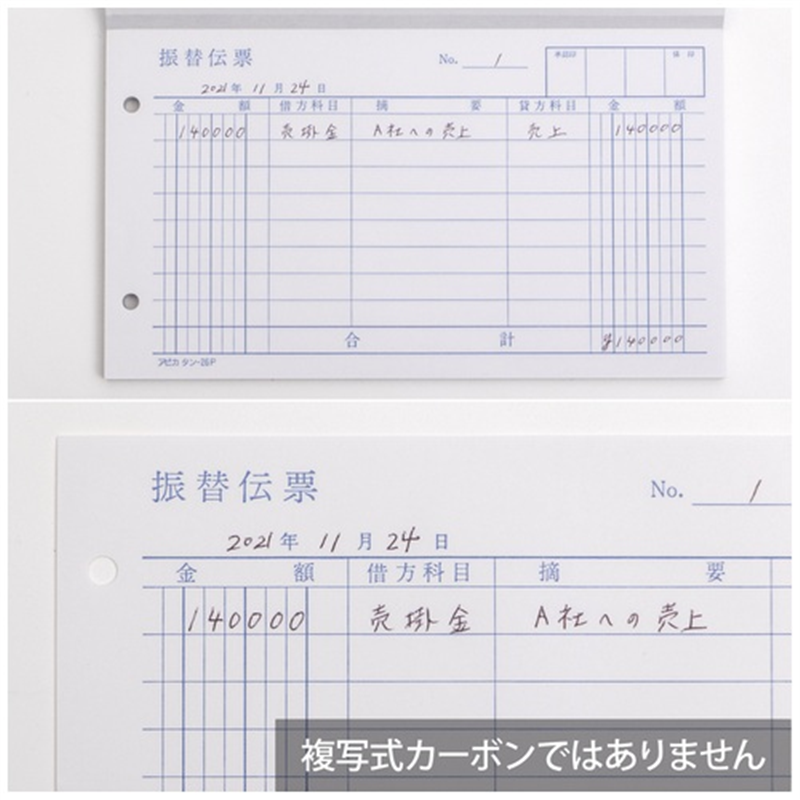 振替伝票 No. 1 承認印 係印
2021年 11月 24日
金額 借方科目 摘要 貸方科目 金額
140000 売掛金 A社への売上 売上 140000
合計 ¥140000
アピカ タン-26P
振替伝票 No. 1
2021年 11月 24日
金額 借方科目 摘要
140000 売掛金 A社への売上
複写式カーボンではありません